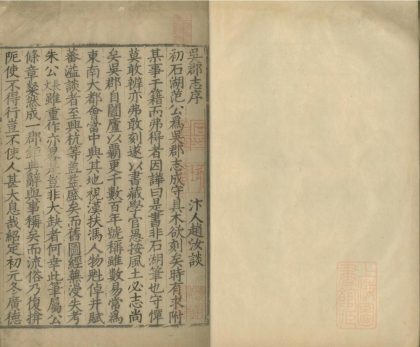 吳郡志序
汴人趙汝談
初石湖范公為吳郡志成守具木欲刻矣時有求附
某事于籍而弗得者因譁曰是書非石湖筆也守憚
莫敢辨亦弗敢刻遂以書藏學官愚按風土必志尚
矣吳郡自闔廬以霸更千數百年號稱雖數易常為
東南大都會當中興其地視漢扶馮人物魁倬井賦
蕃溢談者至與杭等蓋益盛矣而舊圖經蕪漫失考
朱公長雖重作亦略是豈非大缺者何幸此筆屬公
條章粲然成一郡鉅典辭與事稱矣而流俗乃復掎
阨使不得行豈不使人甚太息哉紹定初元冬廣德